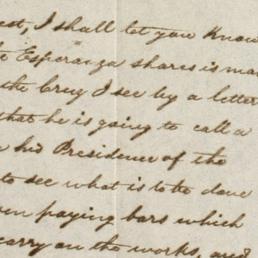 I shall let you Know
Esperanza shares is
the I see by a letter
that he is going to call a
his Presidence of the
to see what is to be done
paying bars which
carry on the works, and